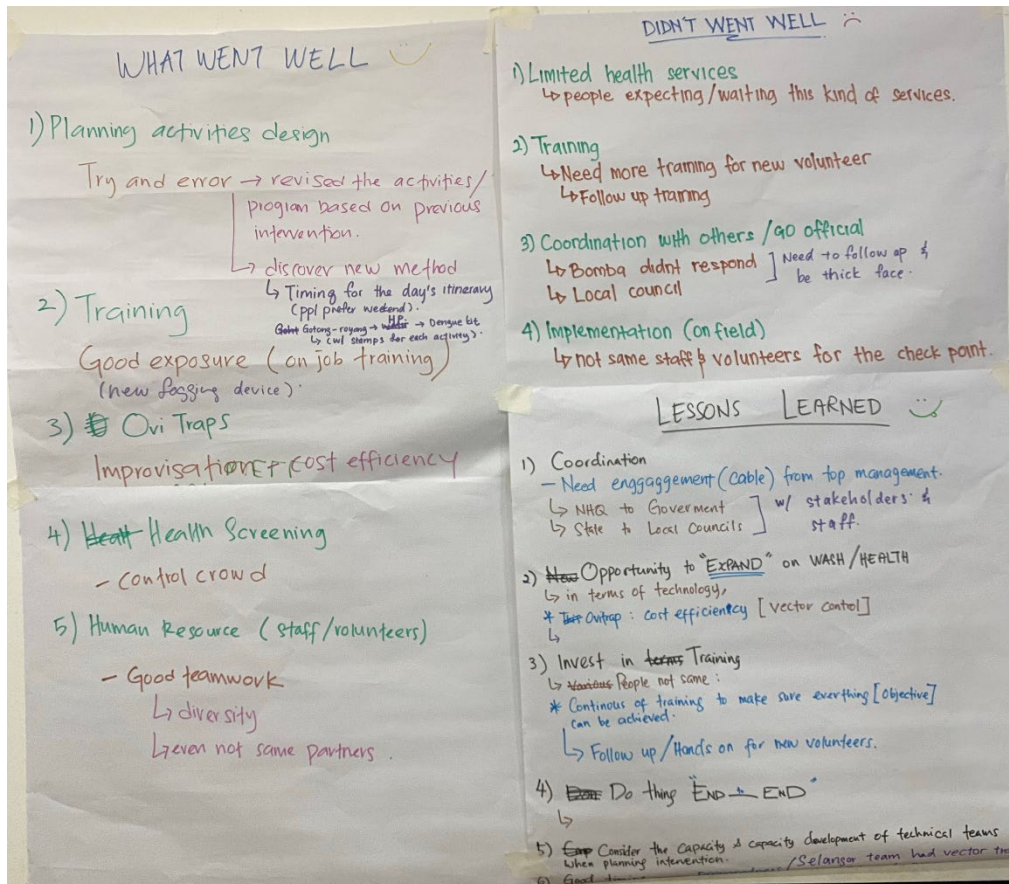 WHAT WENT WELL
1) Planning activities design
Try and error → revised the activities/
program based on previous
intervention.
↳ discover new method
↳ Timing for the day's itinerary
(ppl prefer weekend).
Gotong-royong → HP → Dengue kit
↳ (w/ stamps for each activity).
2) Training
Good exposure (on job training)
(new fogging device).
3) Ovi Traps
Improvisation + cost efficiency
4) Health Screening
- control crowd
5) Human Resource (staff/volunteers)
- Good teamwork
↳ diversity
↳ even not same partners.
DIDN'T WENT WELL
1) Limited health services
↳ people expecting/waiting this kind of services.
2) Training
↳ Need more training for new volunteer
↳ Follow up training
3) Coordination with others /go official
↳ Bomba didnt respond ] Need to follow up &
↳ Local council be thick face.
4) Implementation (on field)
↳ not same staff & volunteers for the check point.
LESSONS LEARNED
1) Coordination
- Need enggaggement (cable) from top management.
↳ NHQ to Goverment ] w/ stakeholders &
↳ State to Local Councils staff.
2) New Opportunity to "EXPAND" on WASH/HEALTH
↳ in terms of technology,
* Ovitrap : cost efficiency [vector control]
↳
3) Invest in terms Training
↳ Various People not same :
* Continous of training to make sure everthing [objective]
can be achieved.
↳ Follow up/Hands on for new volunteers.
4) Do thing "END to END"
↳
5) Consider the capacity & capacity development of technical teams
when planning intervention. /Selangor team had vector
6) Good